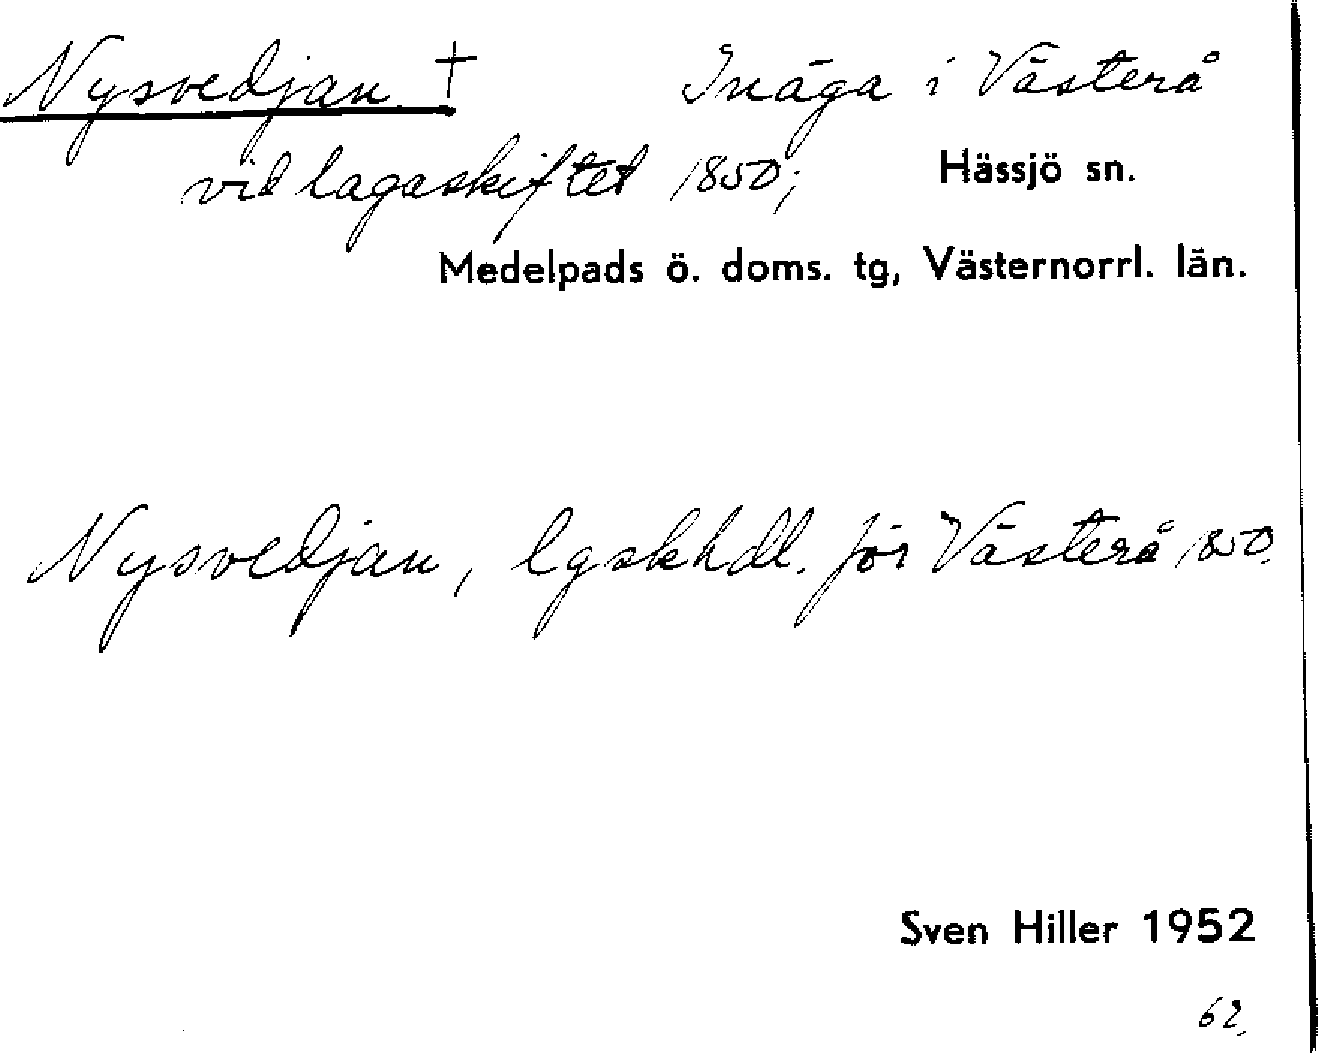 Nysvedjan † Inäga i Västerå
vid lagaskiftet 1850; Hässjö sn.
Medelpads ö. doms. tg, Västernorrl. län.
Nysvedjan, lgskhdl. för Västerå 1850.
Sven Hiller 1952
62.